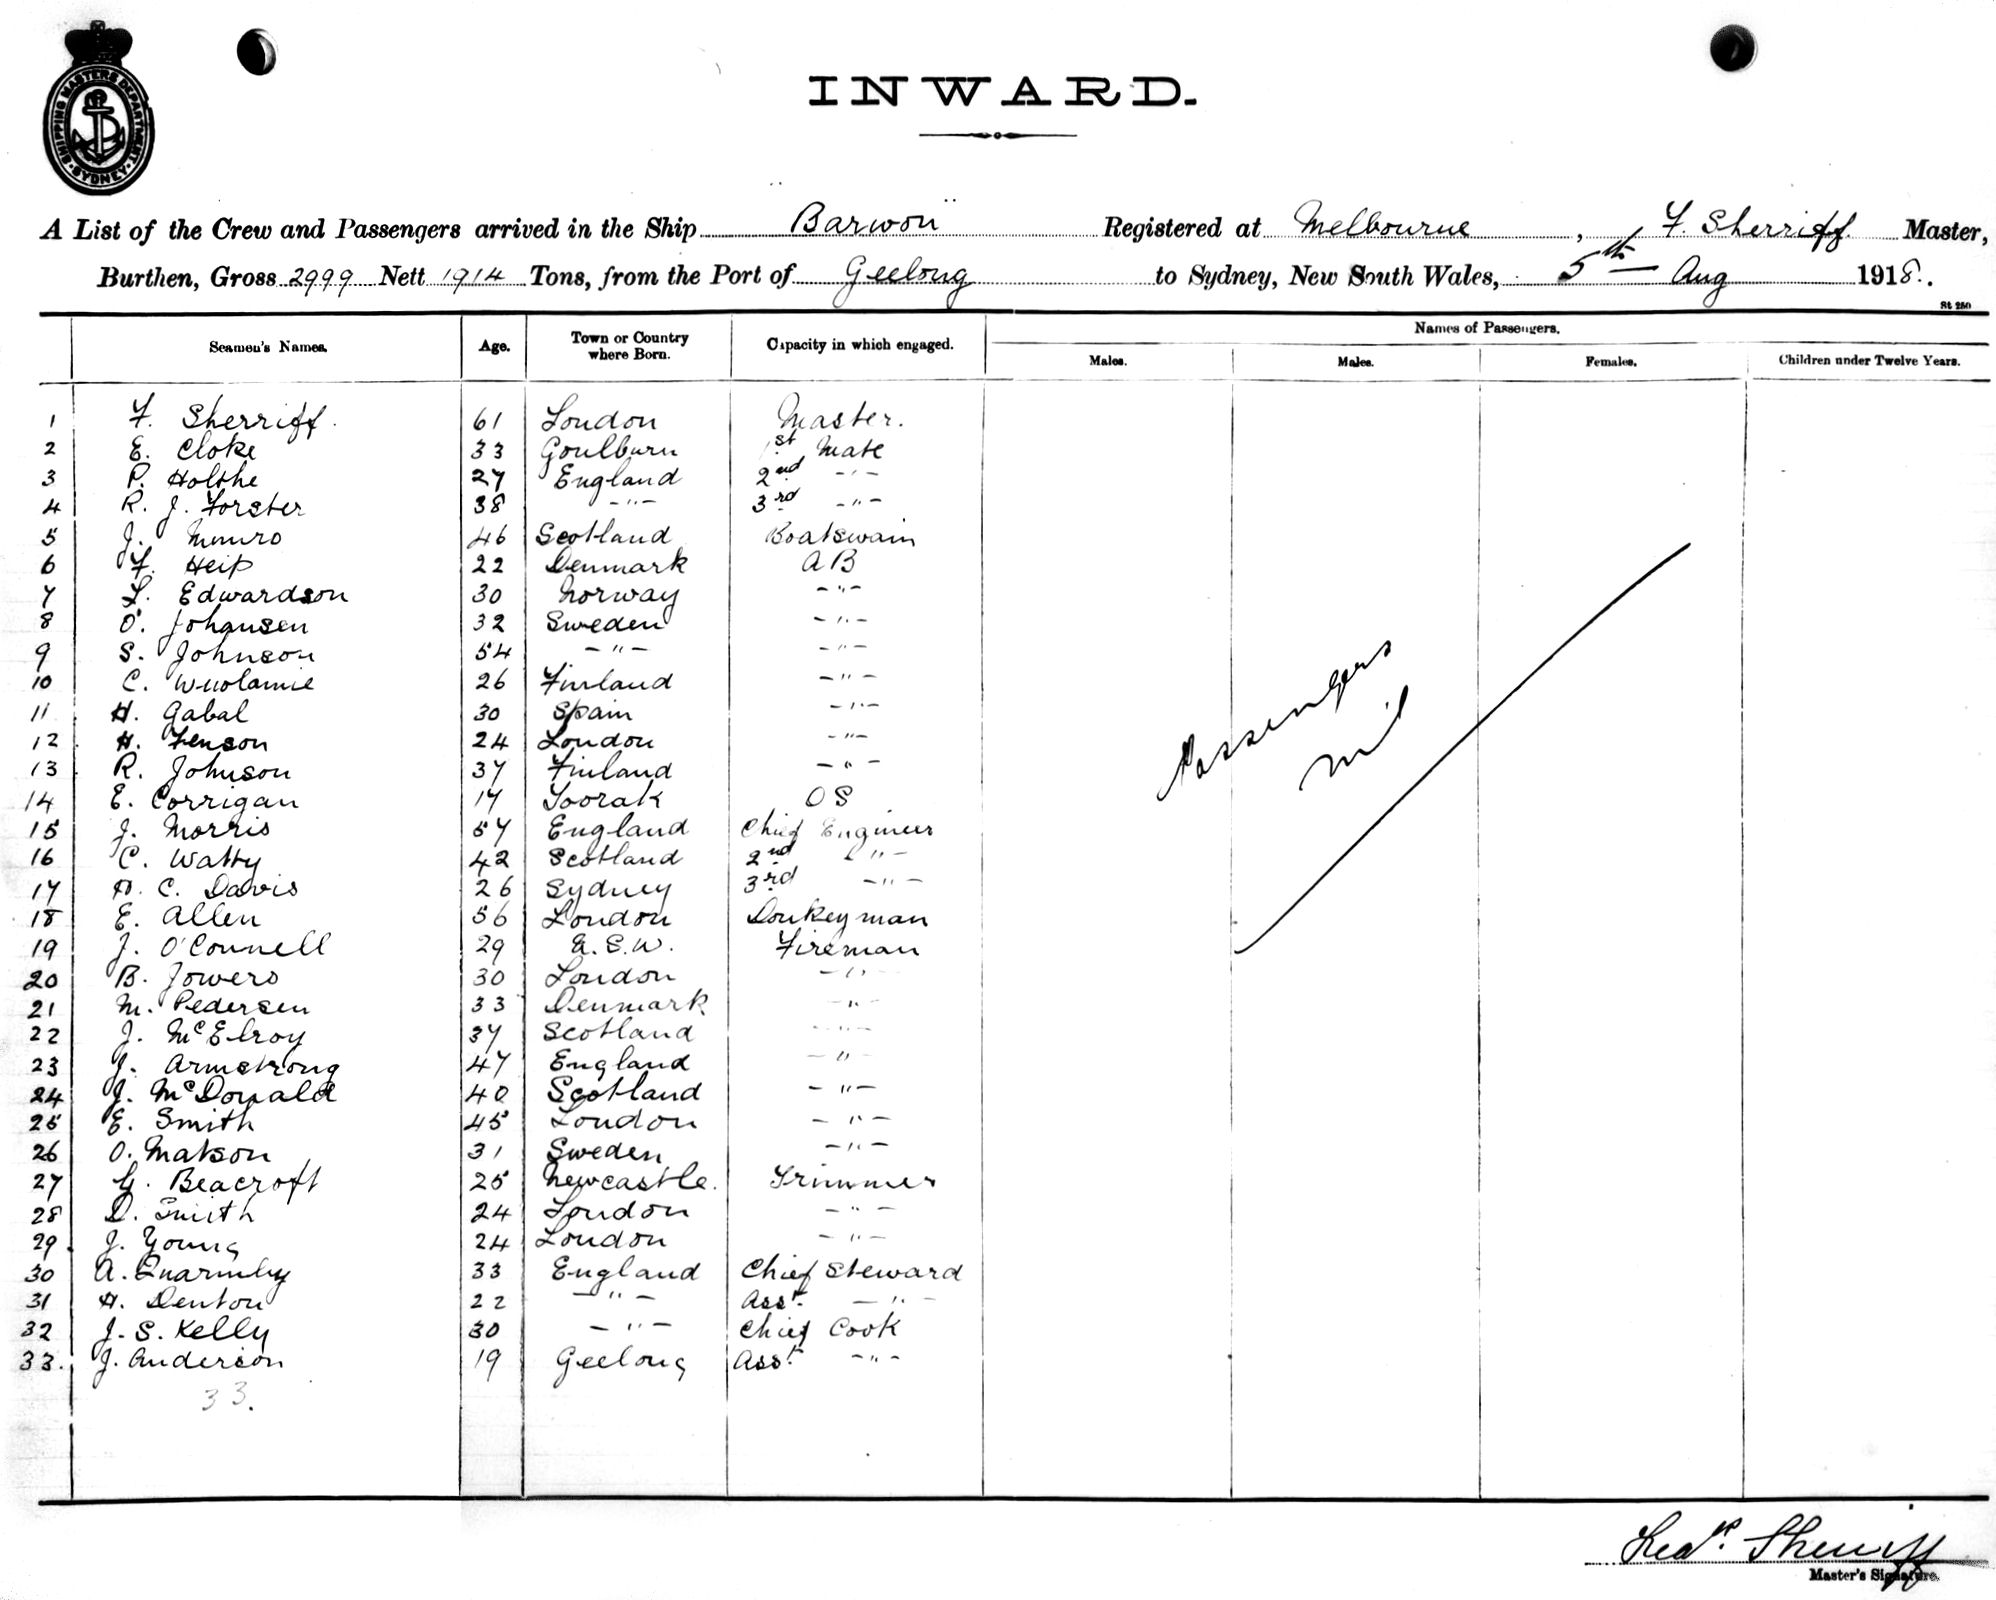 SHIPPING MASTERS DEPARTMENT · SYDNEY ·
INWARD.
A List of the Crew and Passengers arrived in the Ship Barwon Registered at Melbourne, F. Sherriff Master,
Burthen, Gross 2999 Nett 1914 Tons, from the Port of Geelong to Sydney, New South Wales, 5th Aug 1918.
St 250
Seamen's Names. Age. Town or Country where Born. Capacity in which engaged. Names of Passengers.
Males. Males. Females. Children under Twelve Years.
1 F. Sherriff. 61 London Master.
2 E. Cloke 33 Goulburn 1st Mate
3 P. Holthe 27 England 2nd -"-
4 R. J. Forster 38 -"- 3rd -"-
5 J. Munro 46 Scotland Boatswain
6 F. Heip 22 Denmark AB
7 L. Edwardson 30 Norway -"-
8 O. Johansen 32 Sweden -"-
9 S. Johnson 54 -"- -"-
10 C. Wuolamie 26 Finland -"-
11 H. Gabal 30 Spain -"-
12 H. Fenson 24 London -"-
13 R. Johnson 37 Finland -"-
14 E. Corrigan 17 Toorak OS
15 J. Morris 57 England Chief Engineer
16 C. Watty 42 Scotland 2nd -"-
17 H. C. Davis 26 Sydney 3rd -"-
18 E. Allen 56 London Donkeyman
19 J. O'Connell 29 Fireman
20 B. Jowers 30 London -"-
21 M. Pedersen 33 Denmark -"-
22 J. McElroy 37 Scotland -"-
23 J. Armstrong 47 England -"-
24 J. McDonald 40 Scotland -"-
25 E. Smith 45 London -"-
26 O. Matson 31 Sweden -"-
27 G. Beacroft 25 Newcastle. Trimmer
28 D. Smith 24 London -"-
29 J. Young 24 London -"-
30 A. Quarmby 33 England Chief Steward
31 H. Denton 22 -"- Asst. -"-
32 J. S. Kelly 30 -"- Chief Cook
33. J. Anderson 19 Geelong Asst. -"-
33.
Passengers
nil
Fredk. Sherriff
Master's Signature.